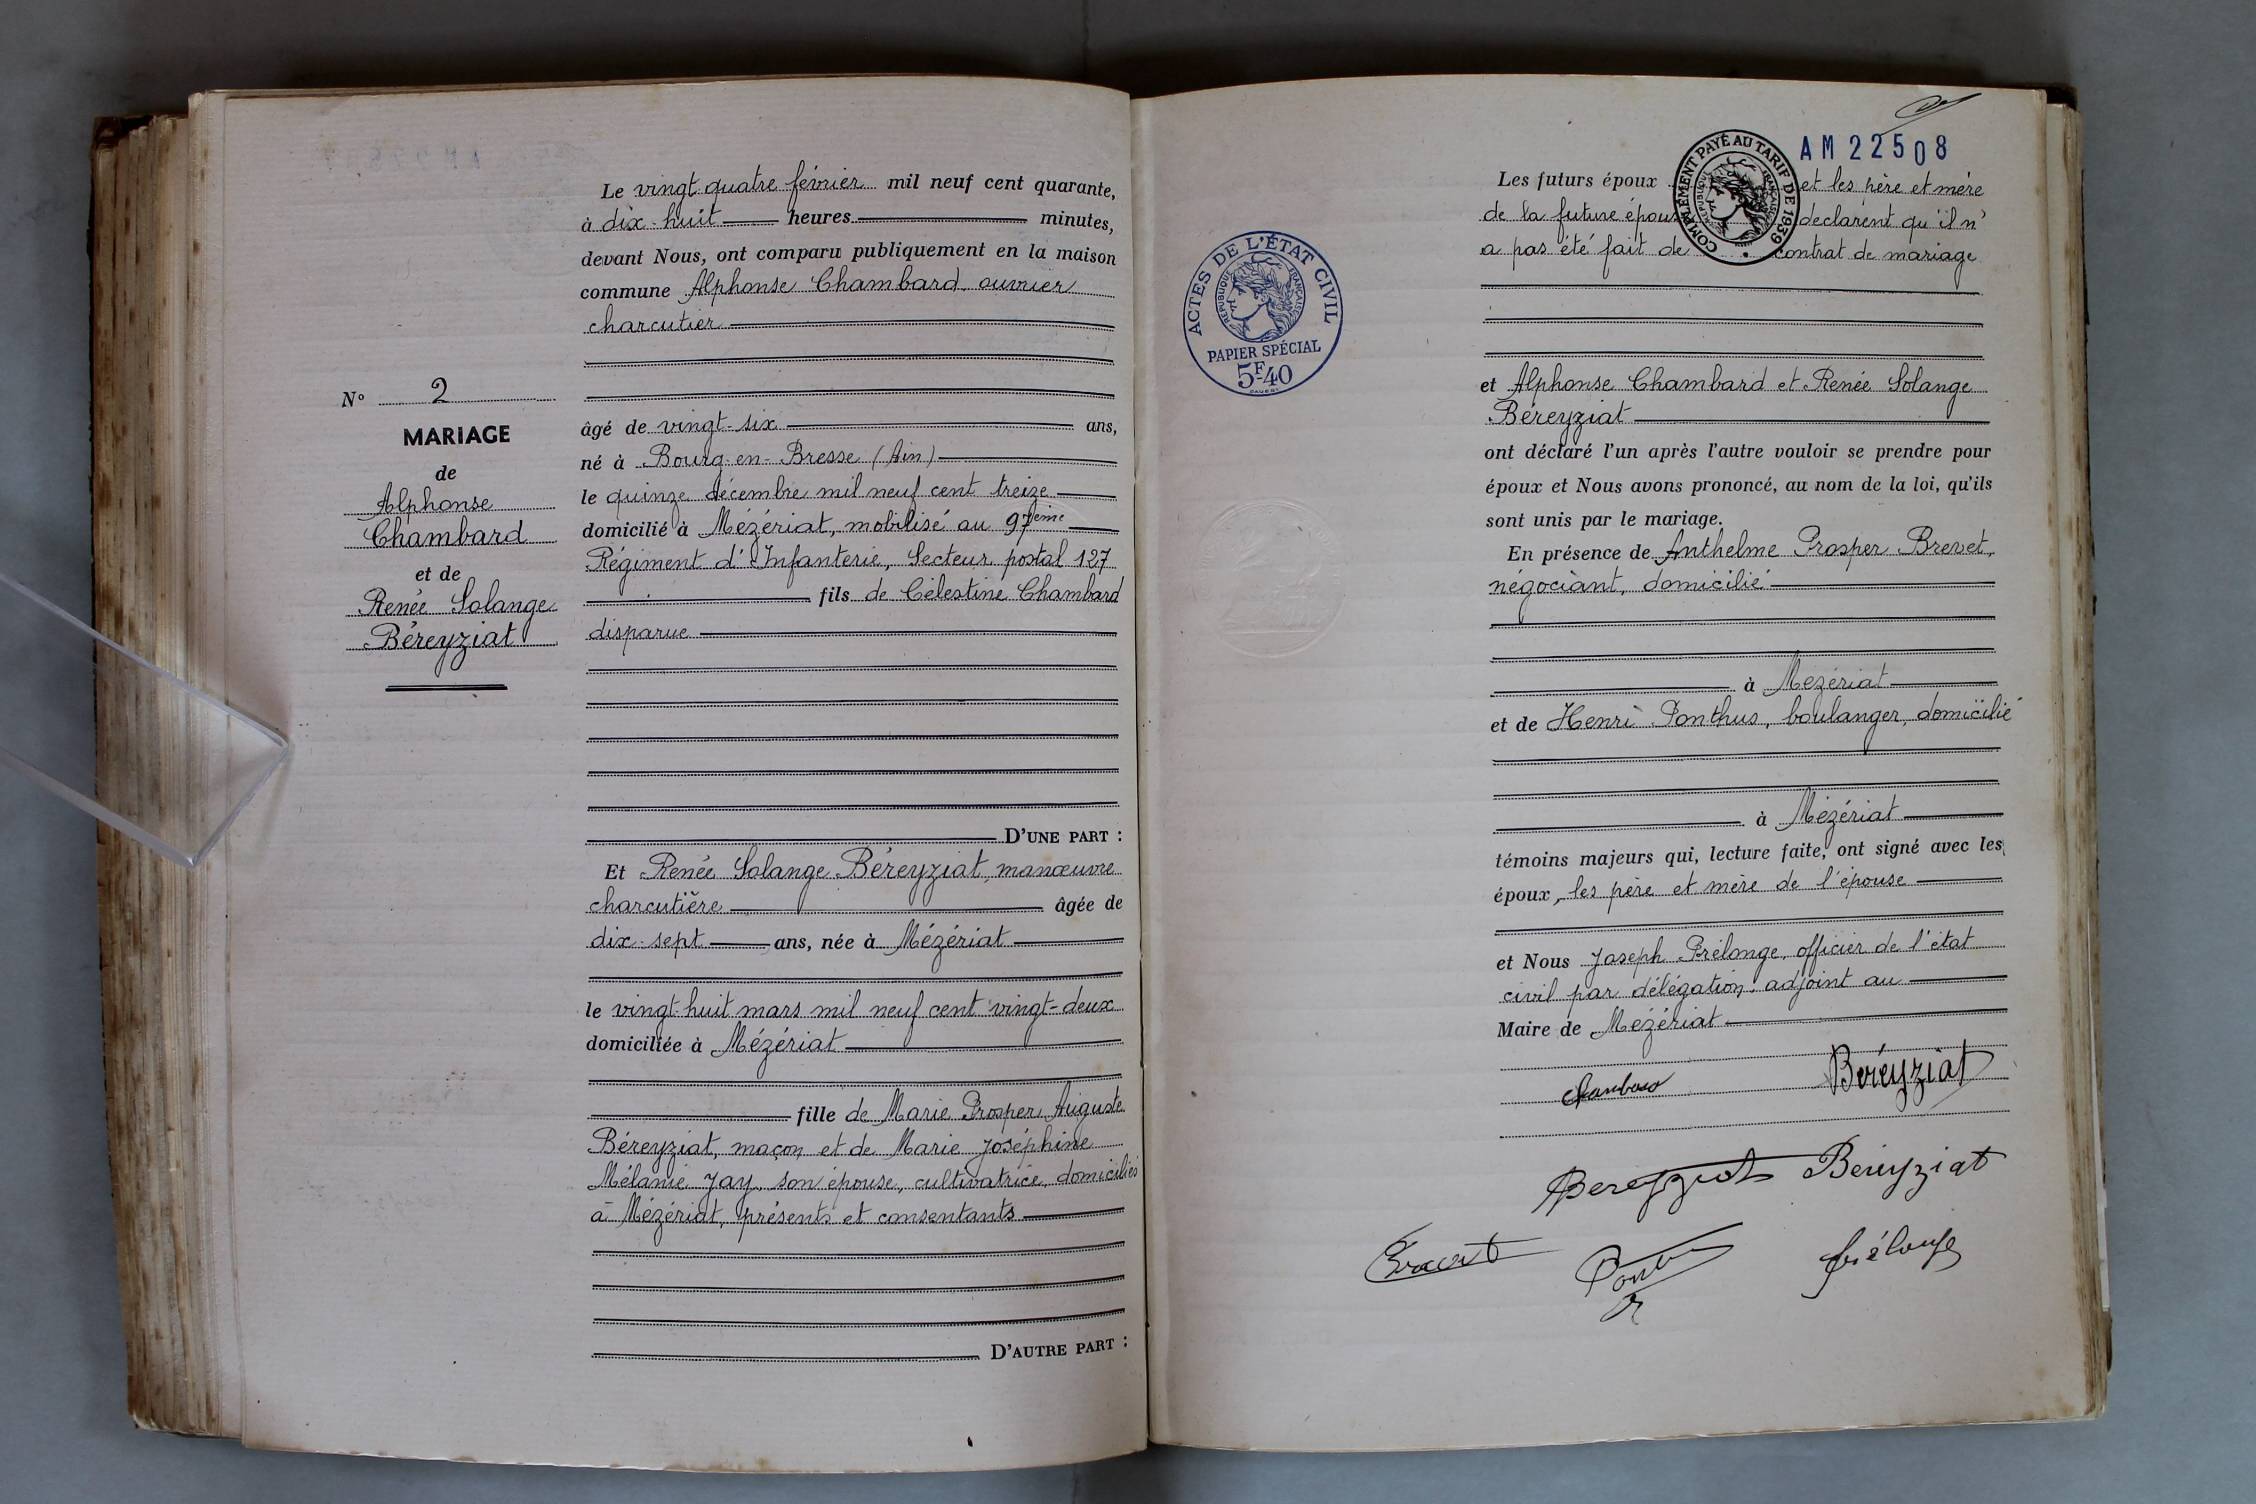 Le vingt quatre février mil neuf cent quarante,
à dix-huit heures minutes,
devant Nous, ont comparu publiquement en la maison
commune Alphonse Chambard, ouvrier
charcutier
âgé de vingt-six ans,
né à Bourg-en-Bresse (Ain)
le quinze décembre mil neuf cent treize
domicilié à Mézériat, mobilisé au 97ème
Régiment d'Infanterie, Secteur postal 127
fils de Célestine Chambard
disparue
D'UNE PART :
N° 2
MARIAGE
de
Alphonse
Chambard
et de
Renée Solange
Béreyziat
Et Renée Solange Béreyziat, manœuvre
charcutière âgée de
dix-sept ans, née à Mézériat
le vingt-huit mars mil neuf cent vingt-deux
domiciliée à Mézériat
fille de Marie Prosper Auguste
Béreyziat, maçon et de Marie Joséphine
Mélanie Jay, son épouse, cultivatrice, domiciliés
à Mézériat, présents et consentants
D'AUTRE PART :
AM 22508
COMPLÉMENT PAYÉ AU TARIF DE 1939
RÉPUBLIQUE FRANÇAISE
Les futurs époux et les père et mère
de la future épouse déclarent qu'il n'
a pas été fait de contrat de mariage
ACTES DE L'ÉTAT CIVIL
RÉPUBLIQUE FRANÇAISE
PAPIER SPÉCIAL
5F40
et Alphonse Chambard et Renée Solange
Béreyziat
ont déclaré l'un après l'autre vouloir se prendre pour
époux et Nous avons prononcé, au nom de la loi, qu'ils
sont unis par le mariage.
En présence de Anthelme Prosper Brevet,
négociant, domicilié
à Mézériat
et de Henri Ponthus, boulanger, domicilié
à Mézériat
témoins majeurs qui, lecture faite, ont signé avec les
époux, les père et mère de l'épouse
et Nous Joseph Prélonge, officier de l'état
civil par délégation, adjoint au
Maire de Mézériat
Béreyziat
Bereyziat Béreyziat
Prélonge